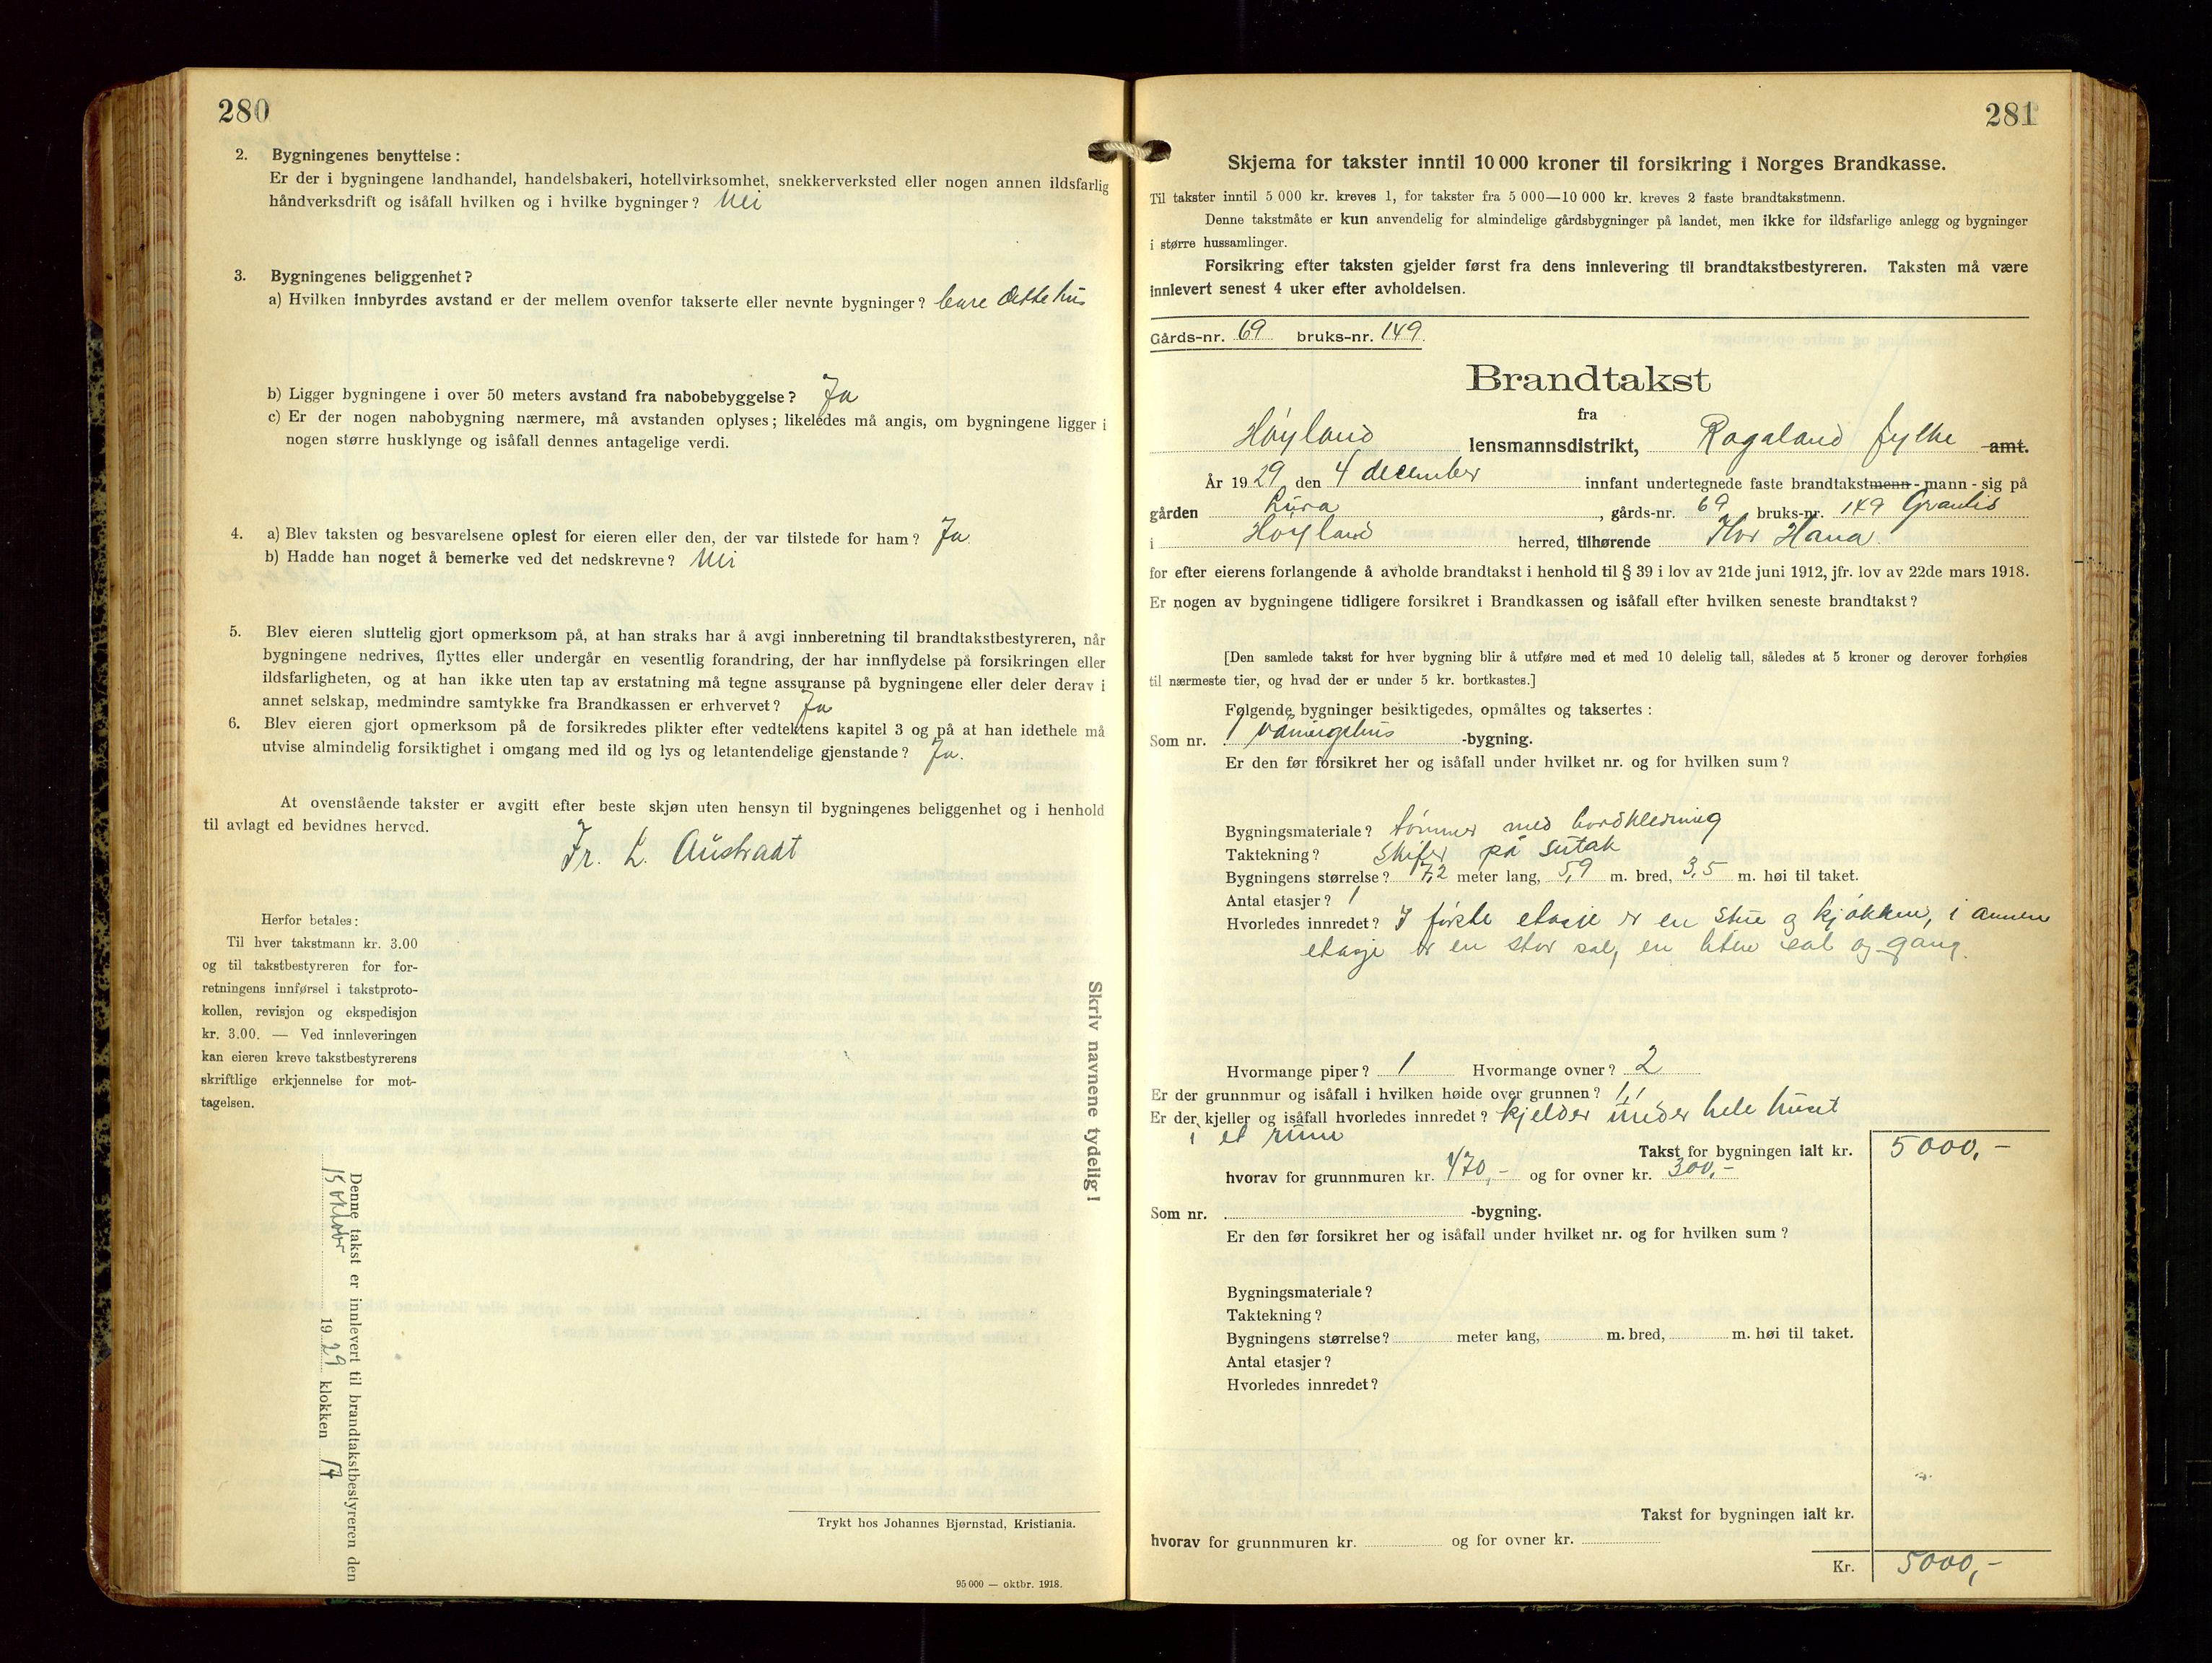 280
2. Bygningenes benyttelse :
Er der i bygningene landhandel, handelsbakeri, hotellvirksomhet, snekkerverksted eller nogen annen ildsfarlig
håndverksdrift og isåfall hvilken og i hvilke bygninger? Nei
3. Bygningenes beliggenhet?
a) Hvilken innbyrdes avstand er der mellem ovenfor takserte eller nevnte bygninger? bare dette hus
b) Ligger bygningene i over 50 meters avstand fra nabobebyggelse? Ja
c) Er der nogen nabobygning nærmere, må avstanden oplyses; likeledes må angis, om bygningene ligger i
nogen større husklynge og isåfall dennes antagelige verdi.
4. a) Blev taksten og besvarelsene oplest for eieren eller den, der var tilstede for ham? Ja
b) Hadde han noget å bemerke ved det nedskrevne? Nei
5. Blev eieren sluttelig gjort opmerksom på, at han straks har å avgi innberetning til brandtakstbestyreren, når
bygningene nedrives, flyttes eller undergår en vesentlig forandring, der har innflydelse på forsikringen eller
ildsfarligheten, og at han ikke uten tap av erstatning må tegne assuranse på bygningene eller deler derav i
annet selskap, medmindre samtykke fra Brandkassen er erhvervet? Ja
6. Blev eieren gjort opmerksom på de forsikredes plikter efter vedtektens kapitel 3 og på at han idethele må
utvise almindelig forsiktighet i omgang med ild og lys og letantendelige gjenstande? Ja.
At ovenstående takster er avgitt efter beste skjøn uten hensyn til bygningenes beliggenhet og i henhold
til avlagt ed bevidnes herved.
Fr. L. Austraat
Herfor betales :
Til hver takstmann kr. 3.00
og til takstbestyreren for for-
retningens innførsel i takstproto-
kollen, revisjon og ekspedisjon
kr. 3.00. — Ved innleveringen
kan eieren kreve takstbestyrerens
skriftlige erkjennelse for mot-
tagelsen.
Skriv navnene tydelig!
Denne takst er innlevert til brandtakstbestyreren den
15 oktober 1929 klokken 17
Trykt hos Johannes Bjørnstad, Kristiania.
95 000 — oktbr. 1918.
281
Skjema for takster inntil 10 000 kroner til forsikring i Norges Brandkasse.
Til takster inntil 5 000 kr. kreves 1, for takster fra 5 000—10 000 kr. kreves 2 faste brandtakstmenn.
Denne takstmåte er kun anvendelig for almindelige gårdsbygninger på landet, men ikke for ildsfarlige anlegg og bygninger
i større hussamlinger.
Forsikring efter taksten gjelder først fra dens innlevering til brandtakstbestyreren. Taksten må være
innlevert senest 4 uker efter avholdelsen.
Gårds-nr. 69 bruks-nr. 149.
Brandtakst
fra
Høyland lensmannsdistrikt, Rogaland fylke amt.
År 1929 den 4 december innfant undertegnede faste brandtakstmenn - mann - sig på
gården Lura, gårds-nr. 69 bruks-nr. 149
i Høyland herred, tilhørende Thor Hana.
for efter eierens forlangende å avholde brandtakst i henhold til § 39 i lov av 21de juni 1912, jfr. lov av 22de mars 1918.
Er nogen av bygningene tidligere forsikret i Brandkassen og isåfall efter hvilken seneste brandtakst?
[Den samlede takst for hver bygning blir å utføre med et med 10 delelig tall, således at 5 kroner og derover forhøies
til nærmeste tier, og hvad der er under 5 kr. bortkastes.]
Følgende bygninger besiktigedes, opmåltes og taksertes :
Som nr. 1 våningshus -bygning.
Er den før forsikret her og isåfall under hvilket nr. og for hvilken sum?
Bygningsmateriale? tømmer med bordkledning
Taktekning? Skifer på sutak
Bygningens størrelse? 7,2 meter lang, 5,9 m. bred, 3,5 m. høi til taket.
Antal etasjer? 1
Hvorledes innredet? I første etasje er en stue og kjøkken, i annen
etasje er en stor sal, en liten sal og gang.
Hvormange piper? 1 Hvormange ovner? 2
Er der grunnmur og isåfall i hvilken høide over grunnen? 1,1
Er der kjeller og isåfall hvorledes innredet? Kjelder under hele huset
i et rum
Takst for bygningen ialt kr. 5000,-
hvorav for grunnmuren kr. 470,- og for ovner kr. 300,-
Som nr. -bygning.
Er den før forsikret her og isåfall under hvilket nr. og for hvilken sum?
Bygningsmateriale?
Taktekning?
Bygningens størrelse? meter lang, m. bred, m. høi til taket.
Antal etasjer?
Hvorledes innredet?
Takst for bygningen ialt kr.
hvorav for grunnmuren kr. og for ovner kr.
Kr. 5000,-